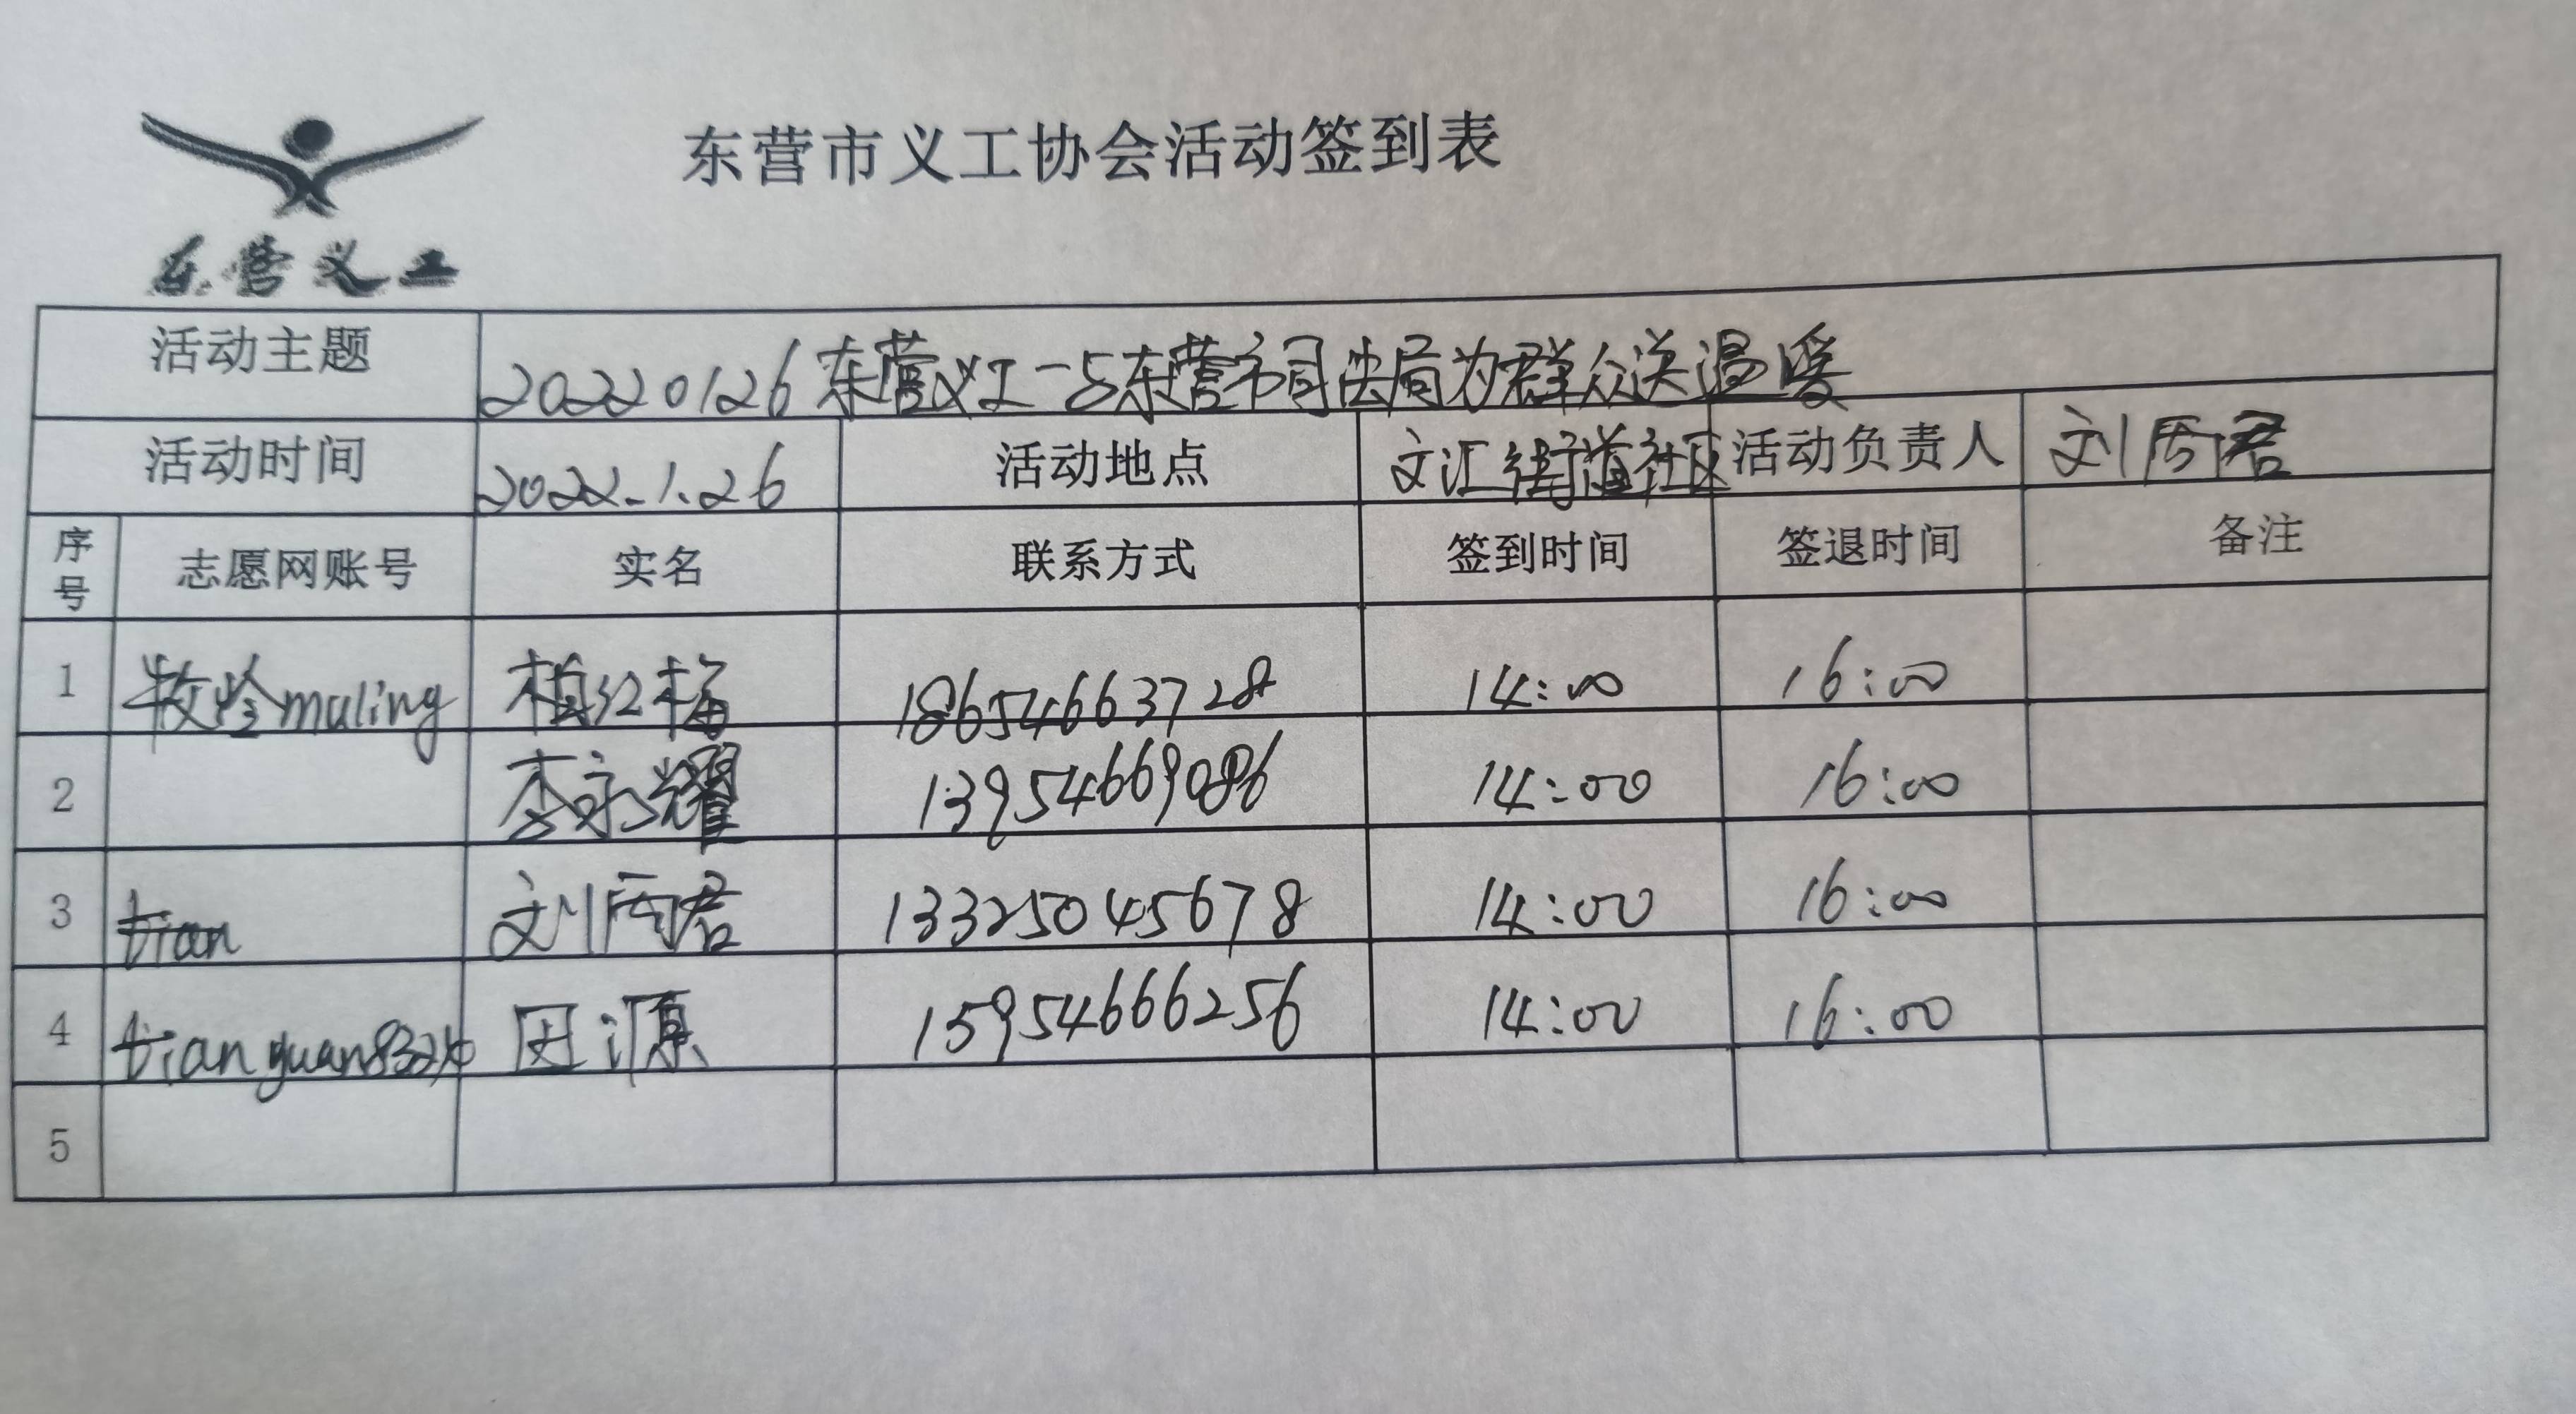 东营市义工协会活动签到表
东营义工
活动主题 20220126东营义工-与东营市司法局为群众送温暖
活动时间 2022.1.26 活动地点 文汇街道社区 活动负责人 刘丙君
序号 志愿网账号 实名 联系方式 签到时间 签退时间 备注
1 muling 红梅 18654663728 14:00 16:00
2 李永耀 13954669086 14:00 16:00
3 tian 刘丙君 13325045678 14:00 16:00
4 田源 15954666256 14:00 16:00
5